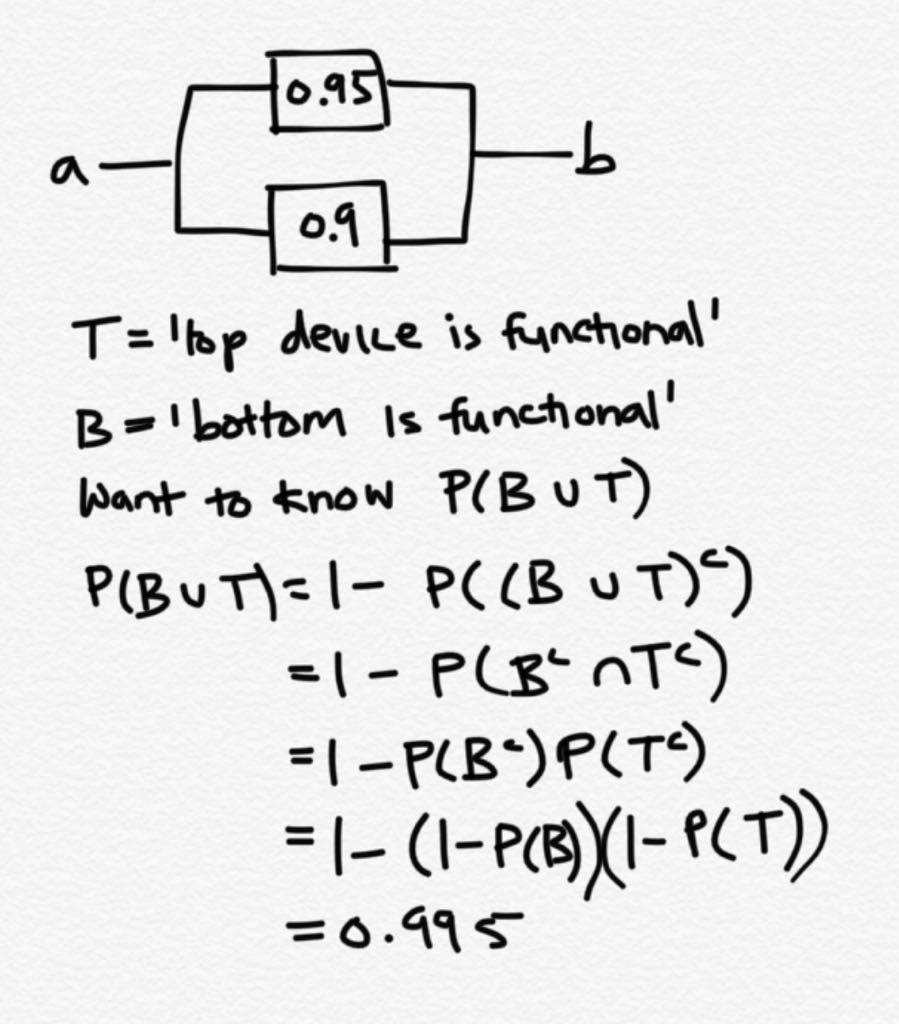 0.95
a b
0.9
T = 'top device is functional'
B = 'bottom is functional'
Want to know P(B ∪ T)
P(B ∪ T) = 1 - P((B ∪ T)ᶜ)
= 1 - P(Bᶜ ∩ Tᶜ)
= 1 - P(Bᶜ) P(Tᶜ)
= 1 - (1 - P(B))(1 - P(T))
= 0.995